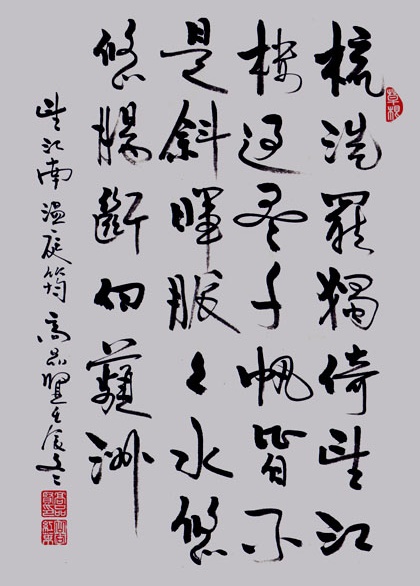 梳洗罷獨倚望江
樓過盡千帆皆不
是斜暉脈々水悠
悠腸斷白蘋洲
望江南 温庭筠 高品賢